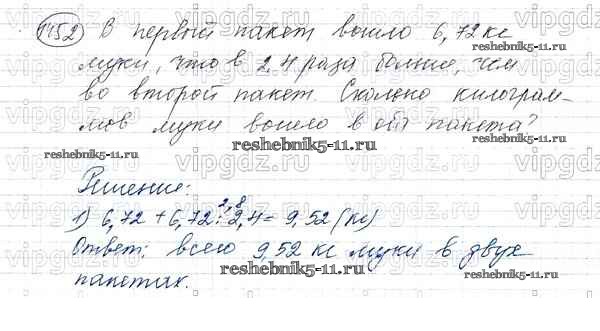 1152) В первый пакет вошло 6,72 кг
муки, что в 2,4 раза больше, чем
во второй пакет. Сколько килограм-
мов муки вошло в оба пакета?
reshebnik5-11.ru
reshebnik5-11.ru
Решение:
2,8
1) 6,72 + 6,72 : 2,4 = 9,52 (кг)
Ответ: всего 9,52 кг муки в двух
пакетах.
reshebnik5-11.ru